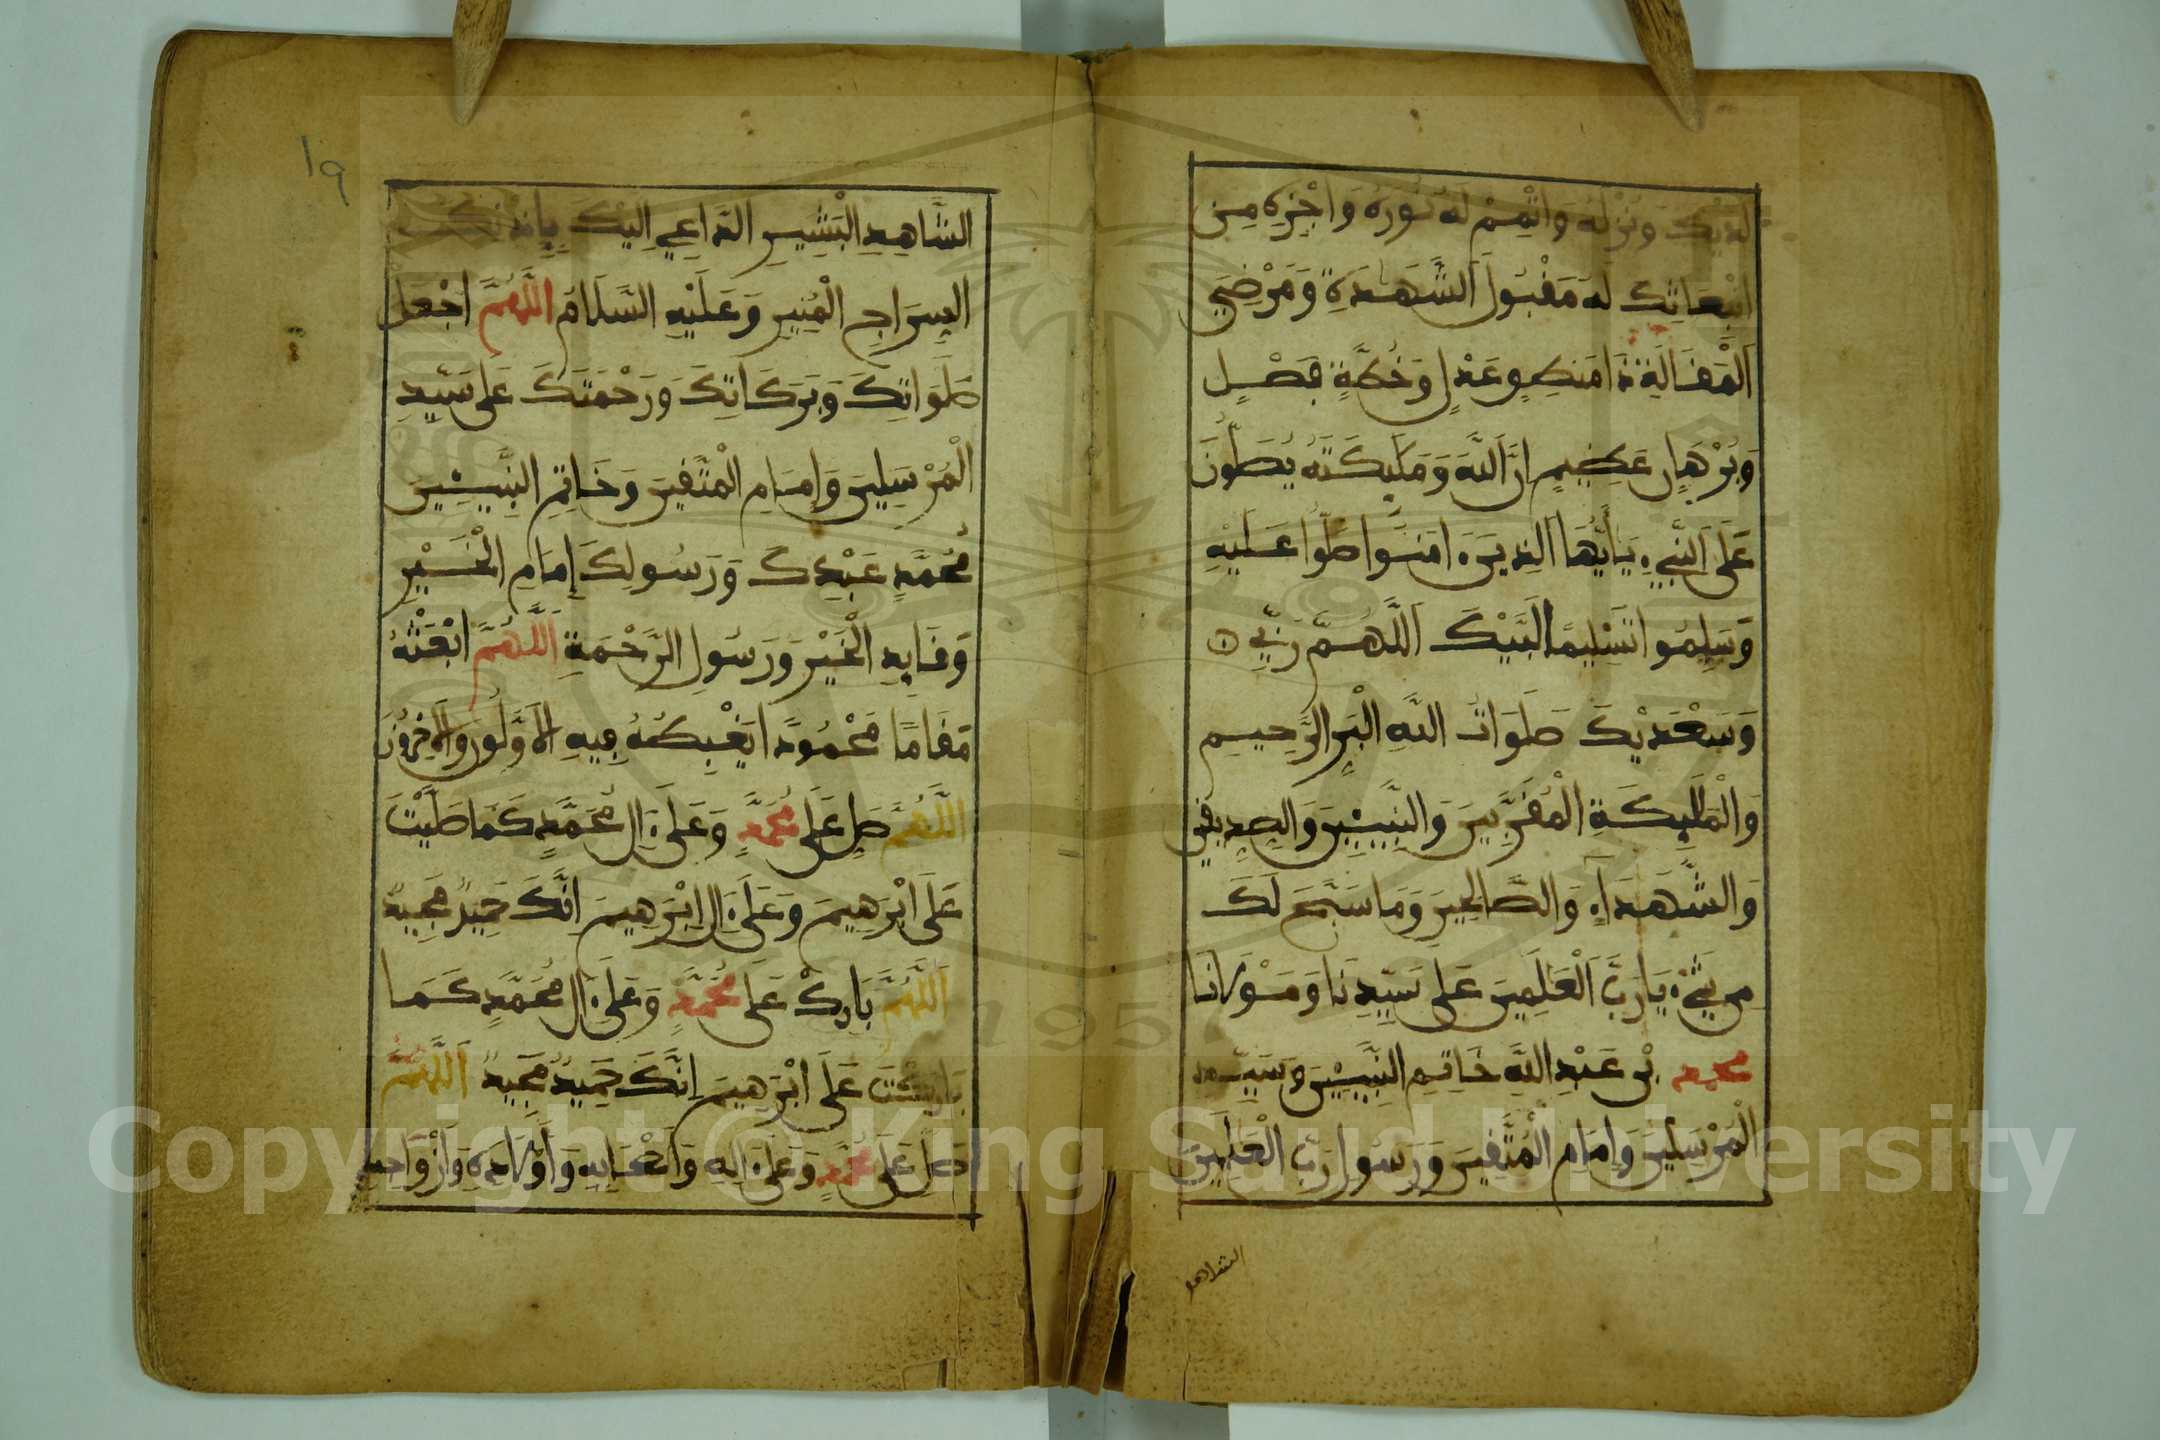 لديك ونزله واتمم له نوره واجزه من
ابتعاثك له مقبول الشهدة ومرضي
المقالة ذا منطو عدل وخطة فصل
وبرهان عظيم ان الله ومليكته يصلون
على النبيء يايها الذين ءامنوا صلوا عليه
وسلموا تسليما لبيك اللهم ربي
وسعديك صلوات الله البر الرحيم
والمليكة المقربين والنبيين والصديقين
والشهداء والصالحين وما سبح لك
من شيء يا رب العلمين على سيدنا ومولانا
محمد بن عبد الله خاتم النبيين وسيد
المرسلين وامام المتقين ورسول رب العلمين
الشاهد
١٩
الشاهد البشير الداعي اليك باذنك
السراج المنير وعليه السلام اللهم اجعل
صلواتك وبركاتك ورحمتك على سيد
المرسلين وإمام المتقين وخاتم النبيين
محمد عبدك ورسولك إمام الخير
وقايد الخير ورسول الرحمة اللهم ابعثه
مقاما محمودا يغبطه فيه الاولون والاخرون
اللهم صل على محمد وعلى ءال محمد كما صليت
على ابرهيم وعلى ءال ابرهيم انك حميد مجيد
اللهم بارك على محمد وعلى ءال محمد كما
باركت على ابرهيم إنك حميد مجيد اللهم
صل على محمد وعلى ءاله واصحابه واولاده وازواجه
Copyright © King Saud University
1957